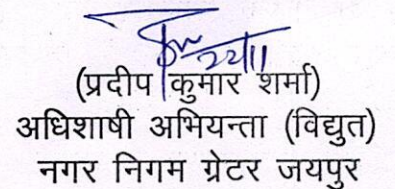 22/11
(प्रदीप कुमार शर्मा)
अधिशाषी अभियन्ता (विद्युत)
नगर निगम ग्रेटर जयपुर